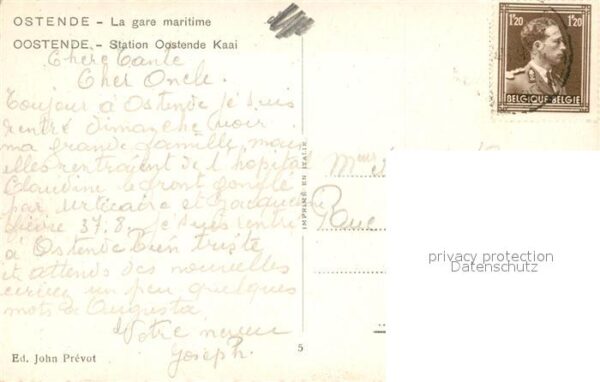 OSTENDE. - La gare maritime
OOSTENDE. - Station Oostende Kaai
Chère tante
Cher Oncle.
Toujour à Ostende Je suis
rentré dimanche voir
ma grande famille, mais
elles rentraient de l'hopital
Claudine le front gonglé
par urticaire et
fièvre 37.8. Je suis rentré
à Ostende bien triste
et attends des nouvelles
écrivez un peu quelques
mots à Augusta
Votre neveu
Joseph.
Ed. John Prévot
5
IMPRIMÉ EN ITALIE
1F20 1F20
BELGIQUE-BELGIE
Rue
privacy protection
Datenschutz